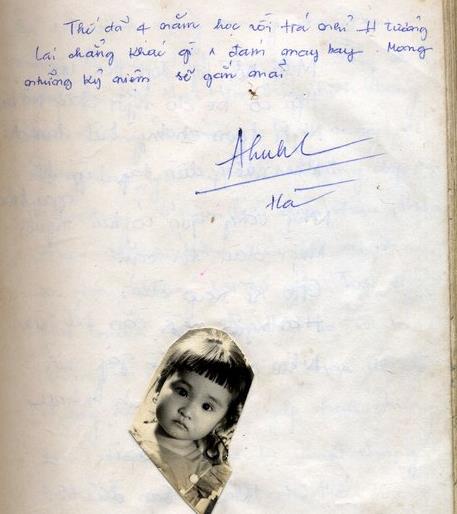 Thế đã 4 năm học rồi trả nhỉ H Tưởng
lại chẳng khác gì 1 đám mây bay. Mong
những kỷ niệm sẽ gắn mãi
Hà